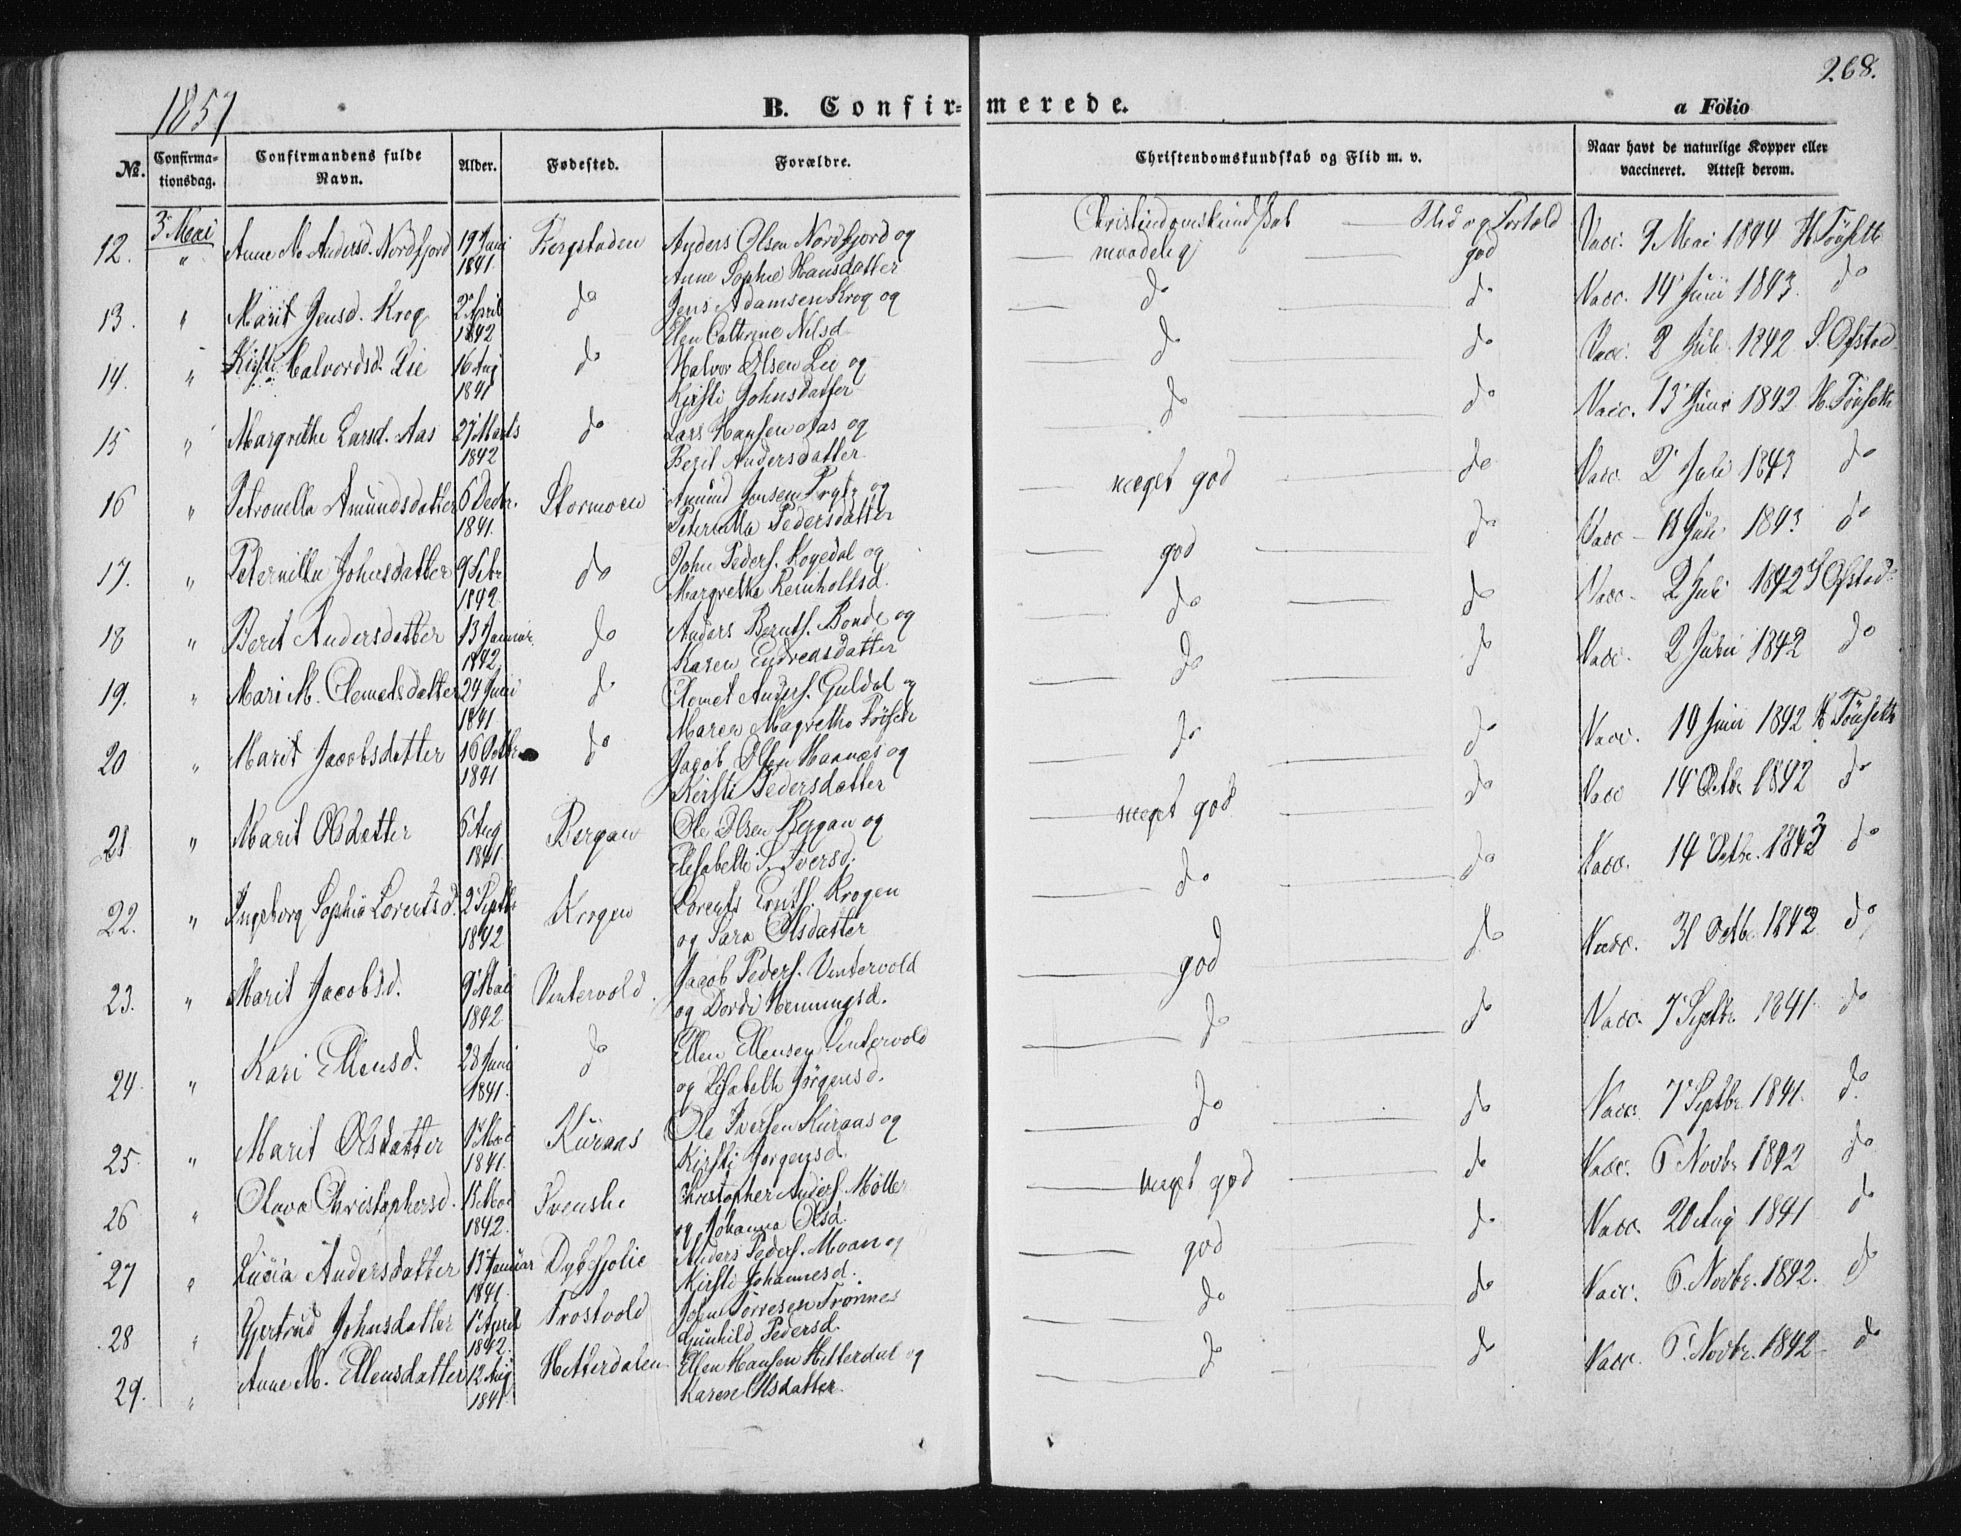 268.
1857
B. Confir- merede.
a Folio
No. Confirma- tionsdag. Confirmandens fulde Navn. Alder. Fødested. Forældre. Christendomskundskab og Flid m. v. Naar havt de naturlige Kopper eller vaccineret. Attest derom.
3 Mai Christendomskundskab — Flid og Forhold
12. " Anne M. Andersd. Nordfjord 19 Juni 1841 Bergstaden Anders Olsen Nordfjord og Anne Sophie Hansdatter — maadelig — god Vacc. 9 Mai 1844 H Tönseth
13. " Marit Jensd. Krog 2 April 1842 do Jens Adamsen Krog og Elen Cathrine Nilsd. do do Vacc. 14 Juni 1843. do
14. " Kirsti Halvorsd. Lie 16 Aug 1841 do Halvor Olsen Lie og Kirsti Johnsdatter do do Vacc. 2 Juli 1842 Ofstad
15 " Margrethe Larsd. Aas 27 Marts 1842 do Lars Hansen Aas og Berit Andersdatter do do Vacc. 13 Juni 1842 H. Tönseth
16 " Petronella Amundsdatter 6 Decbr. 1841. Stormoen Amund Jensen og Peternilla Pedersdatter — meget god — do Vacc. 2 Juli 1843 do
17. " Peternilla Johnsdatter 9 Febr 1842 do John Peders. og Margretha Reinholtsd. — god — do Vacc - 11 Juli 1843 do
18 " Berit Andersdatter 13 Januar 1842 do Anders Bernts. Bonde og Karen Endreasdatter do do Vacc - 2 Juli 1842 Ofstad
19. " Mari M. Clemetsdatter 24 Juni 1841 do Clemet Anders. Guldal og Maren Magrethe do do Vacc. 2 Juli 1842 do
20 " Marit Jacobsdatter 16 Octbr 1841 do Jacob Olsen og Kirsti Pedersdatter do do Vacc. 19 Juni 1842 H Tönseth
21 " Marit Olsdatter 6 Aug 1841 Bergan Ole Olsen Bergan og Elisabeth Iversd. — meget god — do Vacc 14 Octbr 1842 do
22. " Ingeborg Sophie Lorentsd. 2 Septbr 1842 Krogen Lorents Krogen og Sara Olsdatter do do Vacc. 14 Octbr. 1843 do
23. " Marit Jacobsd. 9 Mai 1842 Vintervold. Jacob Peders. Vintervold og Dordi Henningsd. — god — do Vacc. 31 Octbr. 1842 do
24. " Kari Ellensd. 28 Juni 1841. do Ellen Ellensen Vintervold og Elisabeth Jörgensd. do do Vacc. 7 Septbr. 1841. do
25. " Marit Olsdatter 1 Mai 1841. Kuraas Ole Iversen Kuraas og Kirsti Jörgensd. do do Vacc 7 Septbr. 1841. do.
26 " Olava Christophersd. Mai 1842. Svenske Christopher Anders. Möller og Johanna Olsd. — meget god — do Vacc. 6 Novbr. 1842 do
27 " Lucia Andersdatter 13 Januar 1841. Anders Peders. Moan og Kirsti Johannesd. — god — do Vacc. 20 Aug 1841 do
28 " Gjertrud Johnsdatter 1 April 1842. Frostvold John Torresen Trönnes Gunhild Pedersd. do do Vacc. 6 Novbr. 1842. do
29. " Anne M. Ellensdatter 12 Aug 1841. Hitterdalen Ellen Hansen Hitterdal og Karen Olsdatter. do do Vacc. 6 Novbr. 1842 do